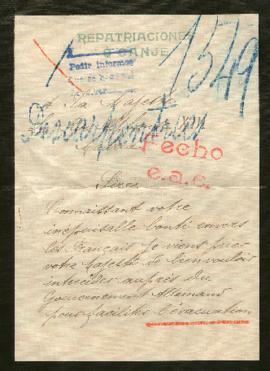 REPATRIACIONES
O CANJE
1549
Pedir informes
A Sa Majesté
Fecho
e.a.e.
Sire
Connaissant votre
bonté envers
les Français je viens prier
votre Majesté de bien vouloir
intercéder auprès du
Gouvernement Allemand
pour faciliter l'évacuation